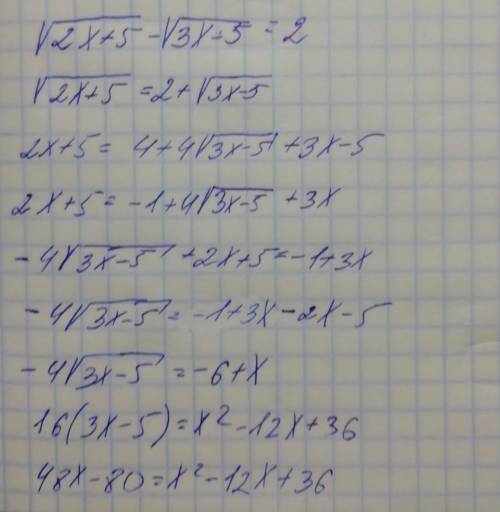 √(2x+5) - √(3x-5) = 2
√(2x+5) = 2+√(3x-5)
2x+5 = 4+4√(3x-5) +3x-5
2x+5 = -1+4√(3x-5) +3x
-4√(3x-5) +2x+5=-1+3x
-4√(3x-5) = -1+3x-2x-5
-4√(3x-5) = -6+x
16(3x-5)=x²-12x+36
48x-80=x²-12x+36